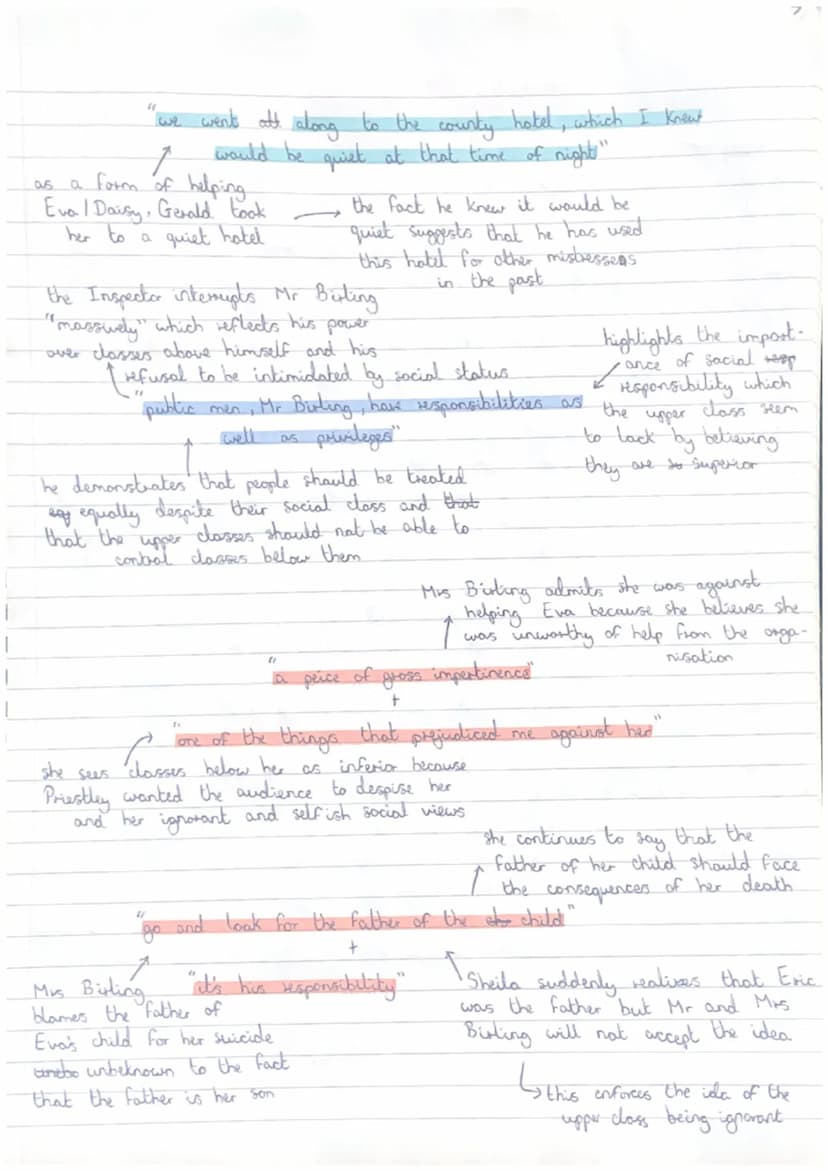 7
"we went off along to the county hotel, which I knew
would be quiet at that time of night"
as a form of helping
Eva/Daisy, Gerald took
her to a quiet hotel
the fact he knew it would be
quiet suggests that he has used
this hotel for other mistresses
in the past
the Inspector interrupts Mr Birling
"massively" which reflects his power
over classes above himself and his
refusal to be intimidated by social status
highlights the import-
ance of social resp
responsibility which
the upper class seem
to lack by believing
they are so superior
"public men, Mr Birling, have responsibilities as
well as privileges"
he demonstrates that people should be treated
eqy equally despite their social class and that
that the upper classes should not be able to
control classes below them
Mrs Birling admits she was against
helping Eva because she believes she
was unworthy of help from the orga-
nisation
"a peice of gross impertinence"
+
"one of the things that prejudiced me against her"
she sees classes below her as inferior because
Priestley wanted the audience to despise her
and her ignorant and selfish social views
she continues to say that the
father of her child should face
the consequences of her death
"go and look for the father of the child"
+
"it's his responsibility"
Mrs Birling
blames the father of
Eva's child for her suicide
unbeknown to the fact
that the father is her son
Sheila suddenly realises that Eric
was the father but Mr and Mrs
Birling will not accept the idea
this enforces the idea of the
upper class being ignorant